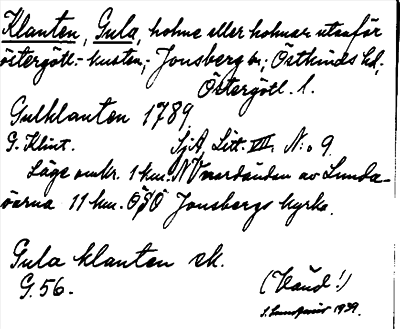 Klanten, Gula, holme eller holmar utanför
östergötl.-kusten,- Jonsberg sn; Östkinds hd,
Östergötl. l.
Gulklanten 1789.
G. Klint. SjA, Litt. VIII, N:o 9.
Läge omkr. 1 km. NV nordändan av Lunda-
öarna 11 km. OSO Jonsbergs kyrka.
Gula klanten ek.
G. 56.
(Vänd!)
1939.